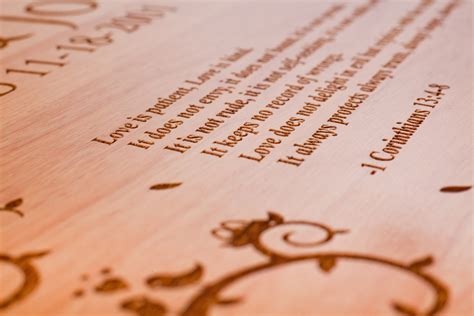 JO
11-18-2001
Love is patient, Love is kind.
It does not envy, it does not boast, it is not
It is not rude, it is not self-seeking, it is not
It keeps no record of wrongs.
Love does not delight in evil but rejoices with the
It always protects, always trusts, always hopes,
-1 Corinthians 13:4-8